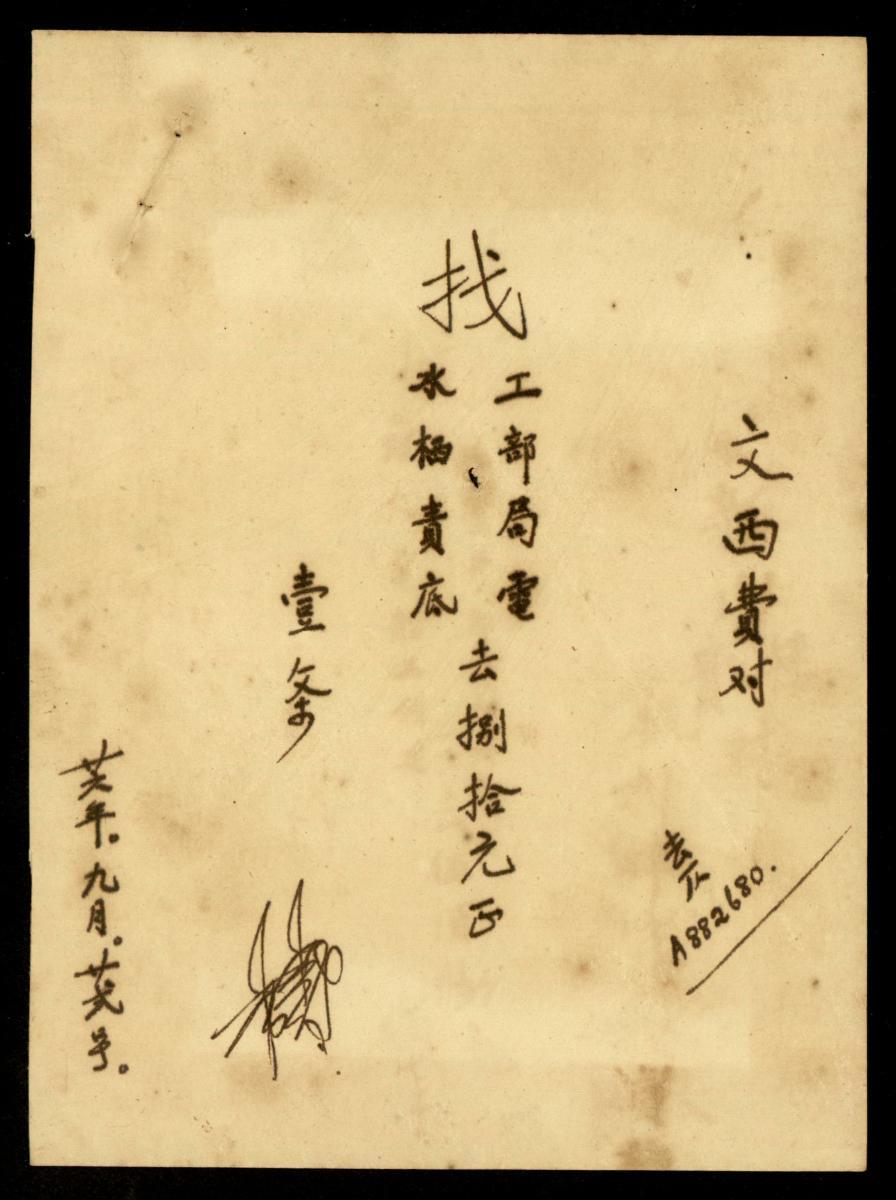 文西費对
去仄
A882680.
找
工部局電
水栖責底
去捌拾元正
壹条
廿六年。九月。廿弍号。